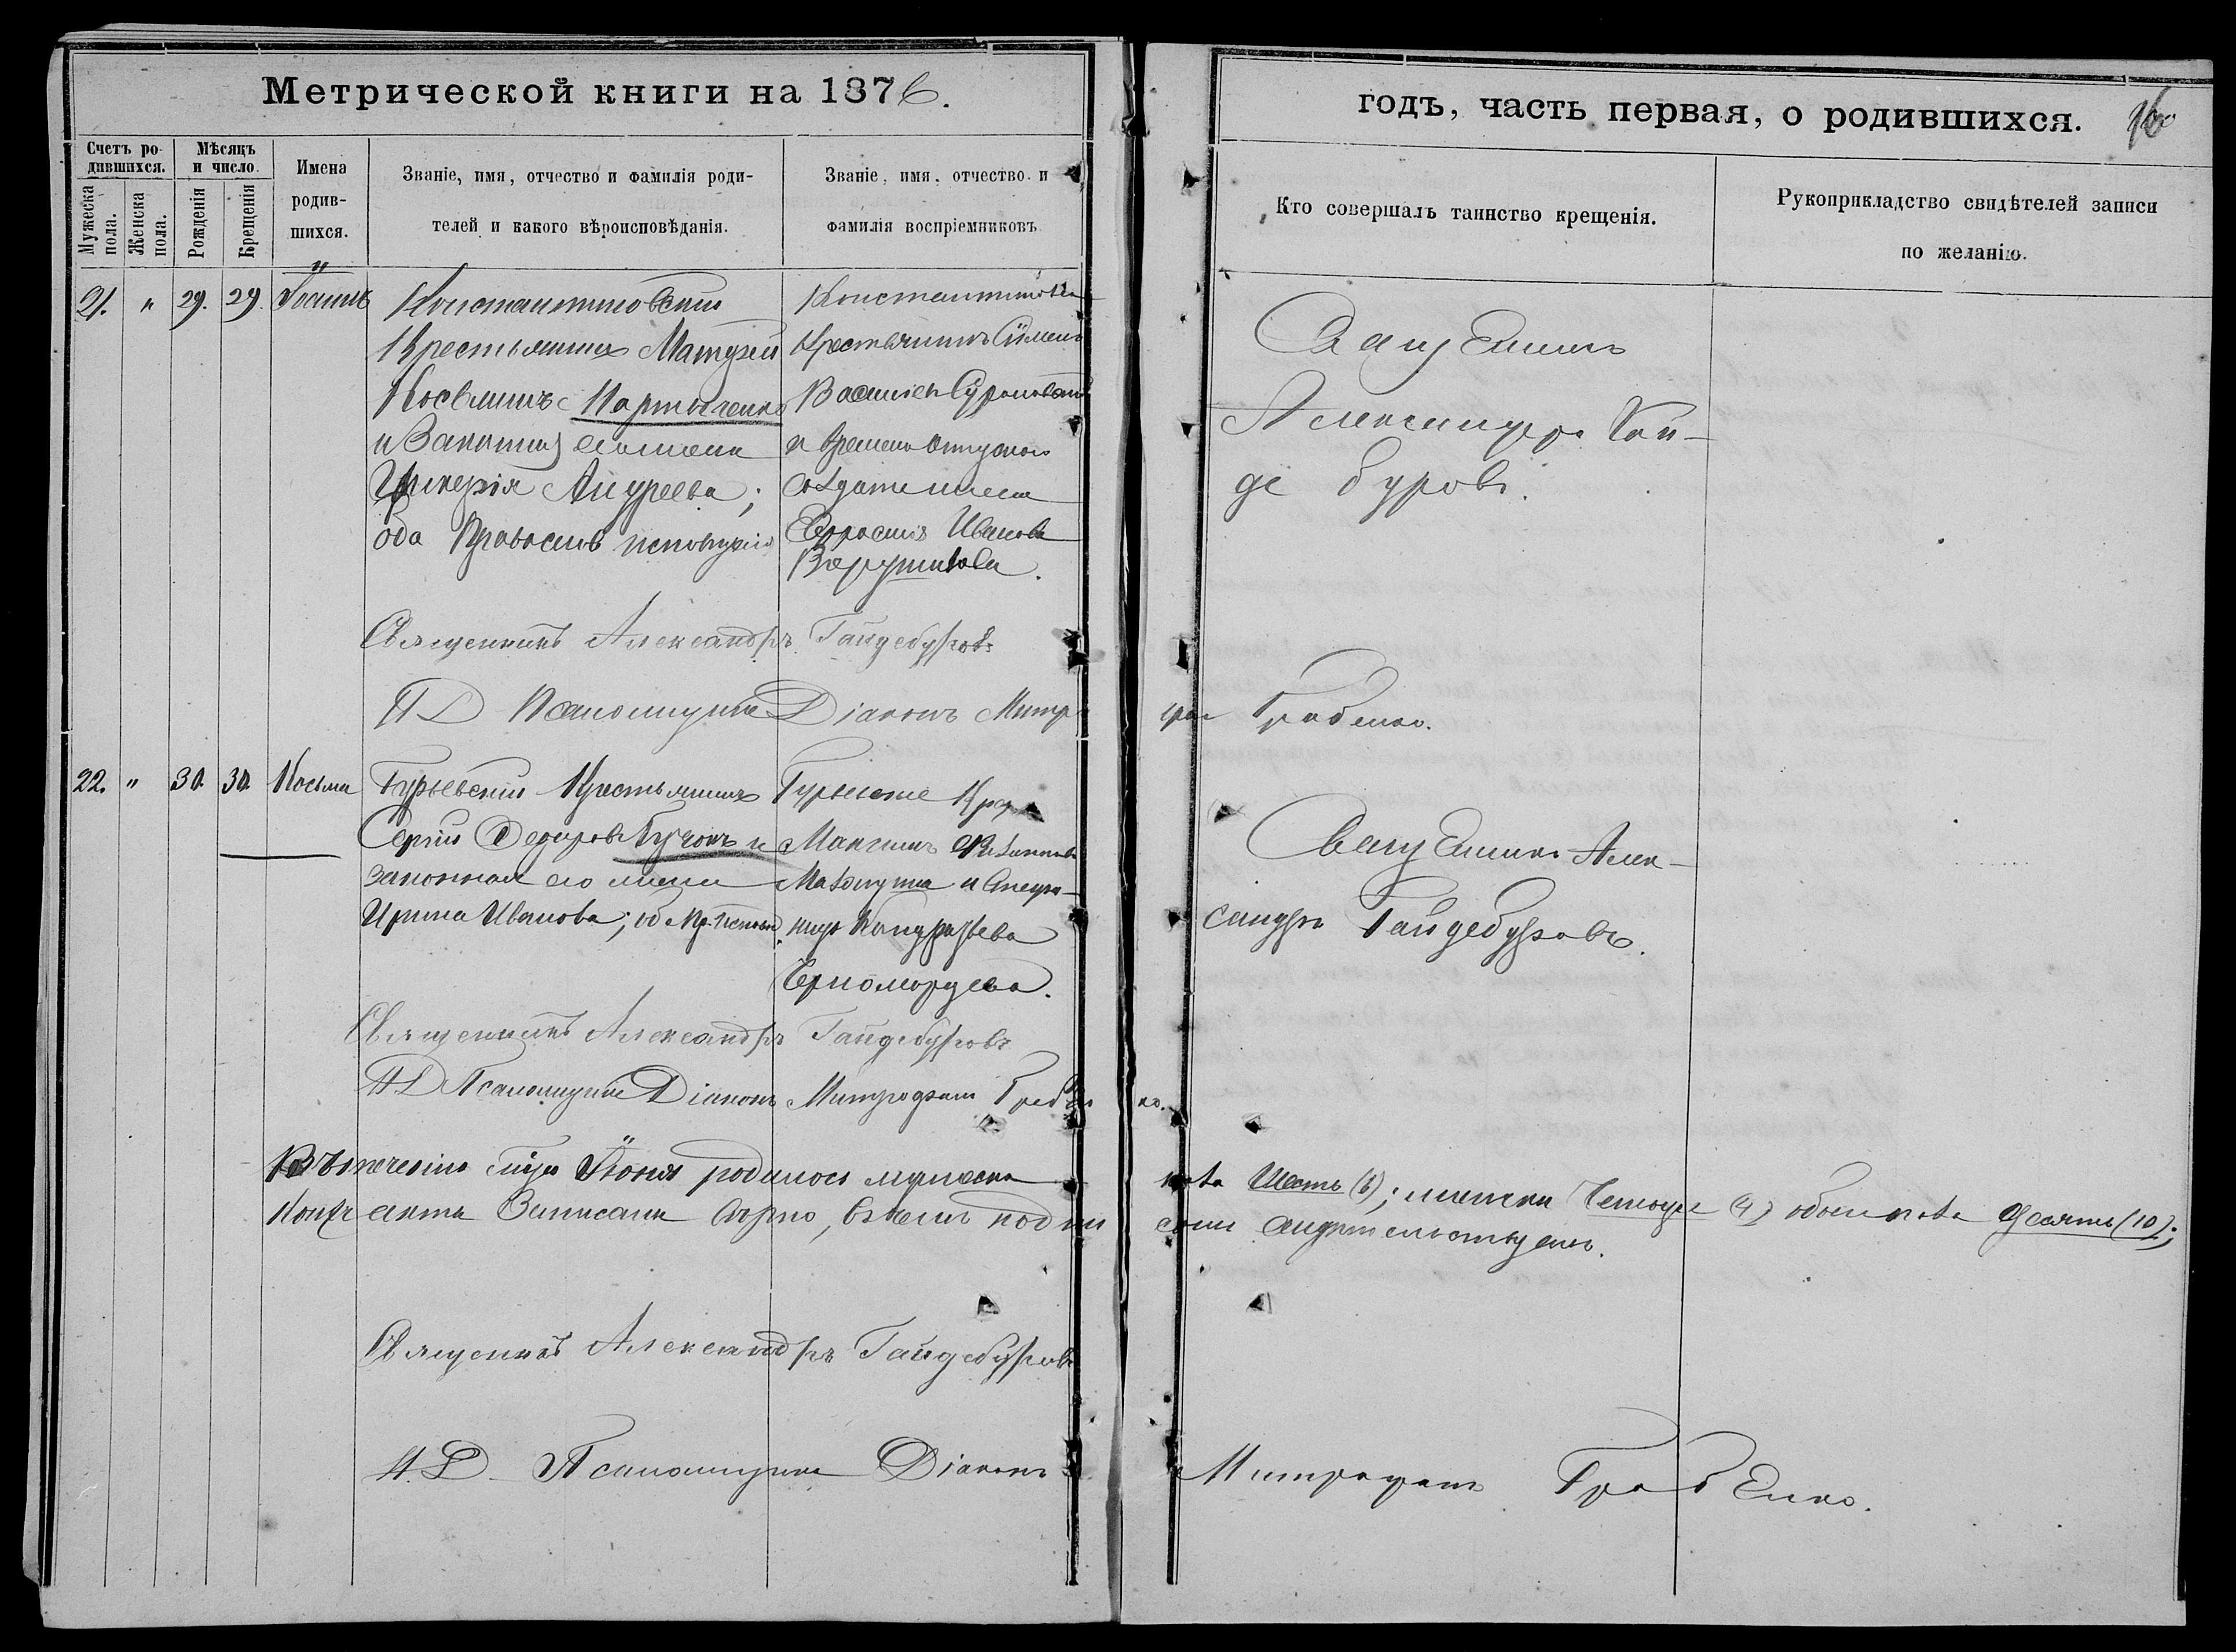 Метрической книги на 1876.
годъ, часть первая, о родившихся.
Счетъ ро-
дившихся.
Мужеска пола.
Женска пола.
Мѣсяцъ
и число.
Рожденія
Крещенія
Имена
родив-
шихся.
Званіе, имя, отчество и фамилія роди-
телей и какого вѣроисповѣданія.
Званіе, имя, отчество и
фамилія воспріемниковъ
Кто совершалъ таинство крещенія.
Рукоприкладство свидѣтелей записи
по желанію.
21. " 29. 29. Іоаннъ
Константиновскій
Крестьянинъ Матѳей
и Законная его жена
Гликерія Андреева;
оба Православ исповѣданія
Крестьянинъ Симеонъ
и временно отпускного
Солдата жена
Евфросинія Иванова
Священникъ
Александръ Гай-
де буровъ.
Священникъ Александръ Гайдебуровъ
И Д Псаломщика Діаконъ Митро
Грабенко.
22. " 30. 30. Косьма
Гурьевскій Крестьянинъ
Сергій Федоровъ Бучокъ и
законная его жена
Ирина Иванова; об. Пр. исповѣд.
Гурьевскіе Крес
Максимъ
и Спири-
Кондратьева
Черномордева.
Священникъ Алек-
сандръ Гайдебуровъ.
Священникъ Александръ Гайдебуровъ
И Д Псаломщика Діаконъ Митрофанъ Грабенко.
Въ теченіи сего Іюня родилось мужеска пола Шесть (6); женска Четыре (4) обоего пола Десять (10);
акты Записаны вѣрно, въ чемъ подпи
сомъ свидѣтельствуемъ.
Священникъ Александръ Гайдебуровъ
И. Д. Псаломщика Діаконъ Митрофанъ Грабенко.